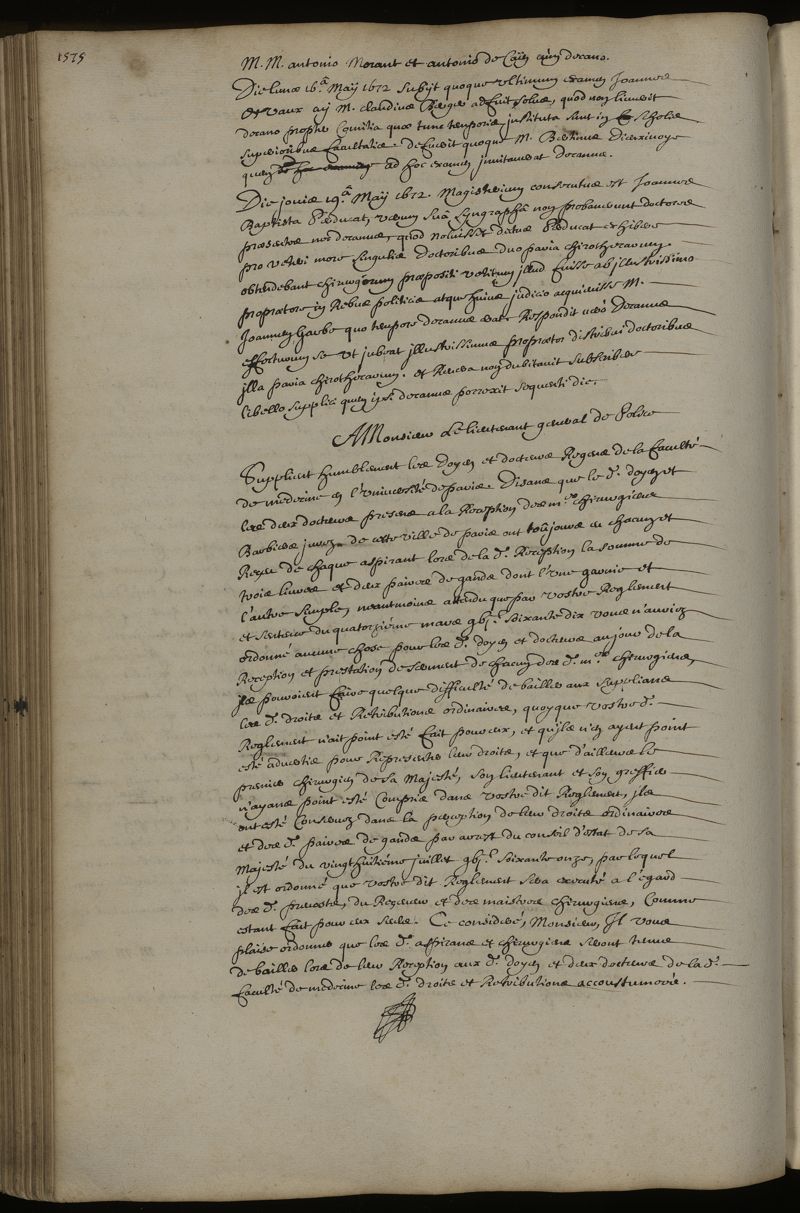 1575
M. M. antonio Morant et antonio de Caën ainj decano.
Die lunæ 16.ª Maÿ 1672 subijt quoque ultimum examen Joannes
Devaux aij M. claudius Berger adfuit solus, quod non licuerit
decano propter Comitia quæ tunc temporis instituta sunt in scholis
superioribus facultatis. Defuerit quoque M. Bertinus Dieuxivoye
quem ad hoc examen invitaverat decanus.
Die jovis 19.ª Maÿ 1672. Magisterium consecutus est Joannes
Baptista Preducat, verum suâ syngraphâ non probaverunt doctores
præsentes nec decanus, quod noluisset dictus Preducat exhibere
pro veteri more singulis doctoribus duo paria chirothecarum.
obtendebant chirurgorum præpositi vetitum illud fuisse ab jllustrissimo
proprætore in Rebus politicis atque huius judicio acquievisse M.
Joannem Garbe quo tempore decanus erat. Respondit verò Decanus
effecturum se ut jubeat jllustrissimus proprætor distribui doctoribus
jlla paria chirothecarum. et Reversa non dubitavit subscribere
libello supplici quem ipsi decanus porrexit sequenti die.
A Monsieur Le lieutenant general de Police
Supplient humblement les Doyen et docteurs Regens de la faculté
de medecine en l'université de paris. Disans que le d. doyen et
les deux docteurs presens a la Reception des m.es chirurgiens
Barbiers jurez de cette ville de paris ont toujours eu chacun et
Receu de chaque aspirant lors de la d. Reception la somme de
trois livres et deux paires de gands dont l'une garnie et
l'autre simple, neantmoins attendu que par vostre Reglement
et sentence du quatorziéme mars gbj.c soixante dix vous n'auriez
ordonné aucune chose pour les d. doyen et docteurs au jour de la
Reception et prestation de serment de chacun des d. m.es chirurgiens,
jls pouroient faire quelque difficulté de bailler aux supplians
les d. droits et Retributions ordinaires, quoyque vostre d.
Reglement n'ait point esté fait pour eux, et qu'jls n'en ayent point
esté advertis pour Representer leurs droits, et que d'ailleurs le
premier chirurgien de sa Majesté, son lieutenant et son greffier
n'ayans point esté Compris dans vostre dit Reglement, jls
ont esté Conservez dans la perception de leurs droits ordinaires
et des d. paires de gands par arrest du conseil d'estat de sa
Majesté du vingt huitiéme juillet gbj.c soixante onze, par lequel
jl est ordonné que vostre dit Reglement sera executé a l'égard
des d. prevosts, du Receveur et des maistres chirurgiens, Comme
estant fait pour eux seuls. Ce consideré, Monsieur, Il vous
plaise ordonner que les d. aspirans et chirurgiens seront tenus
de bailler lors de leur Reception aux d. doyen et deux docteurs de la d.
faculté de medecine les d. droits et Retributions accoustumées.